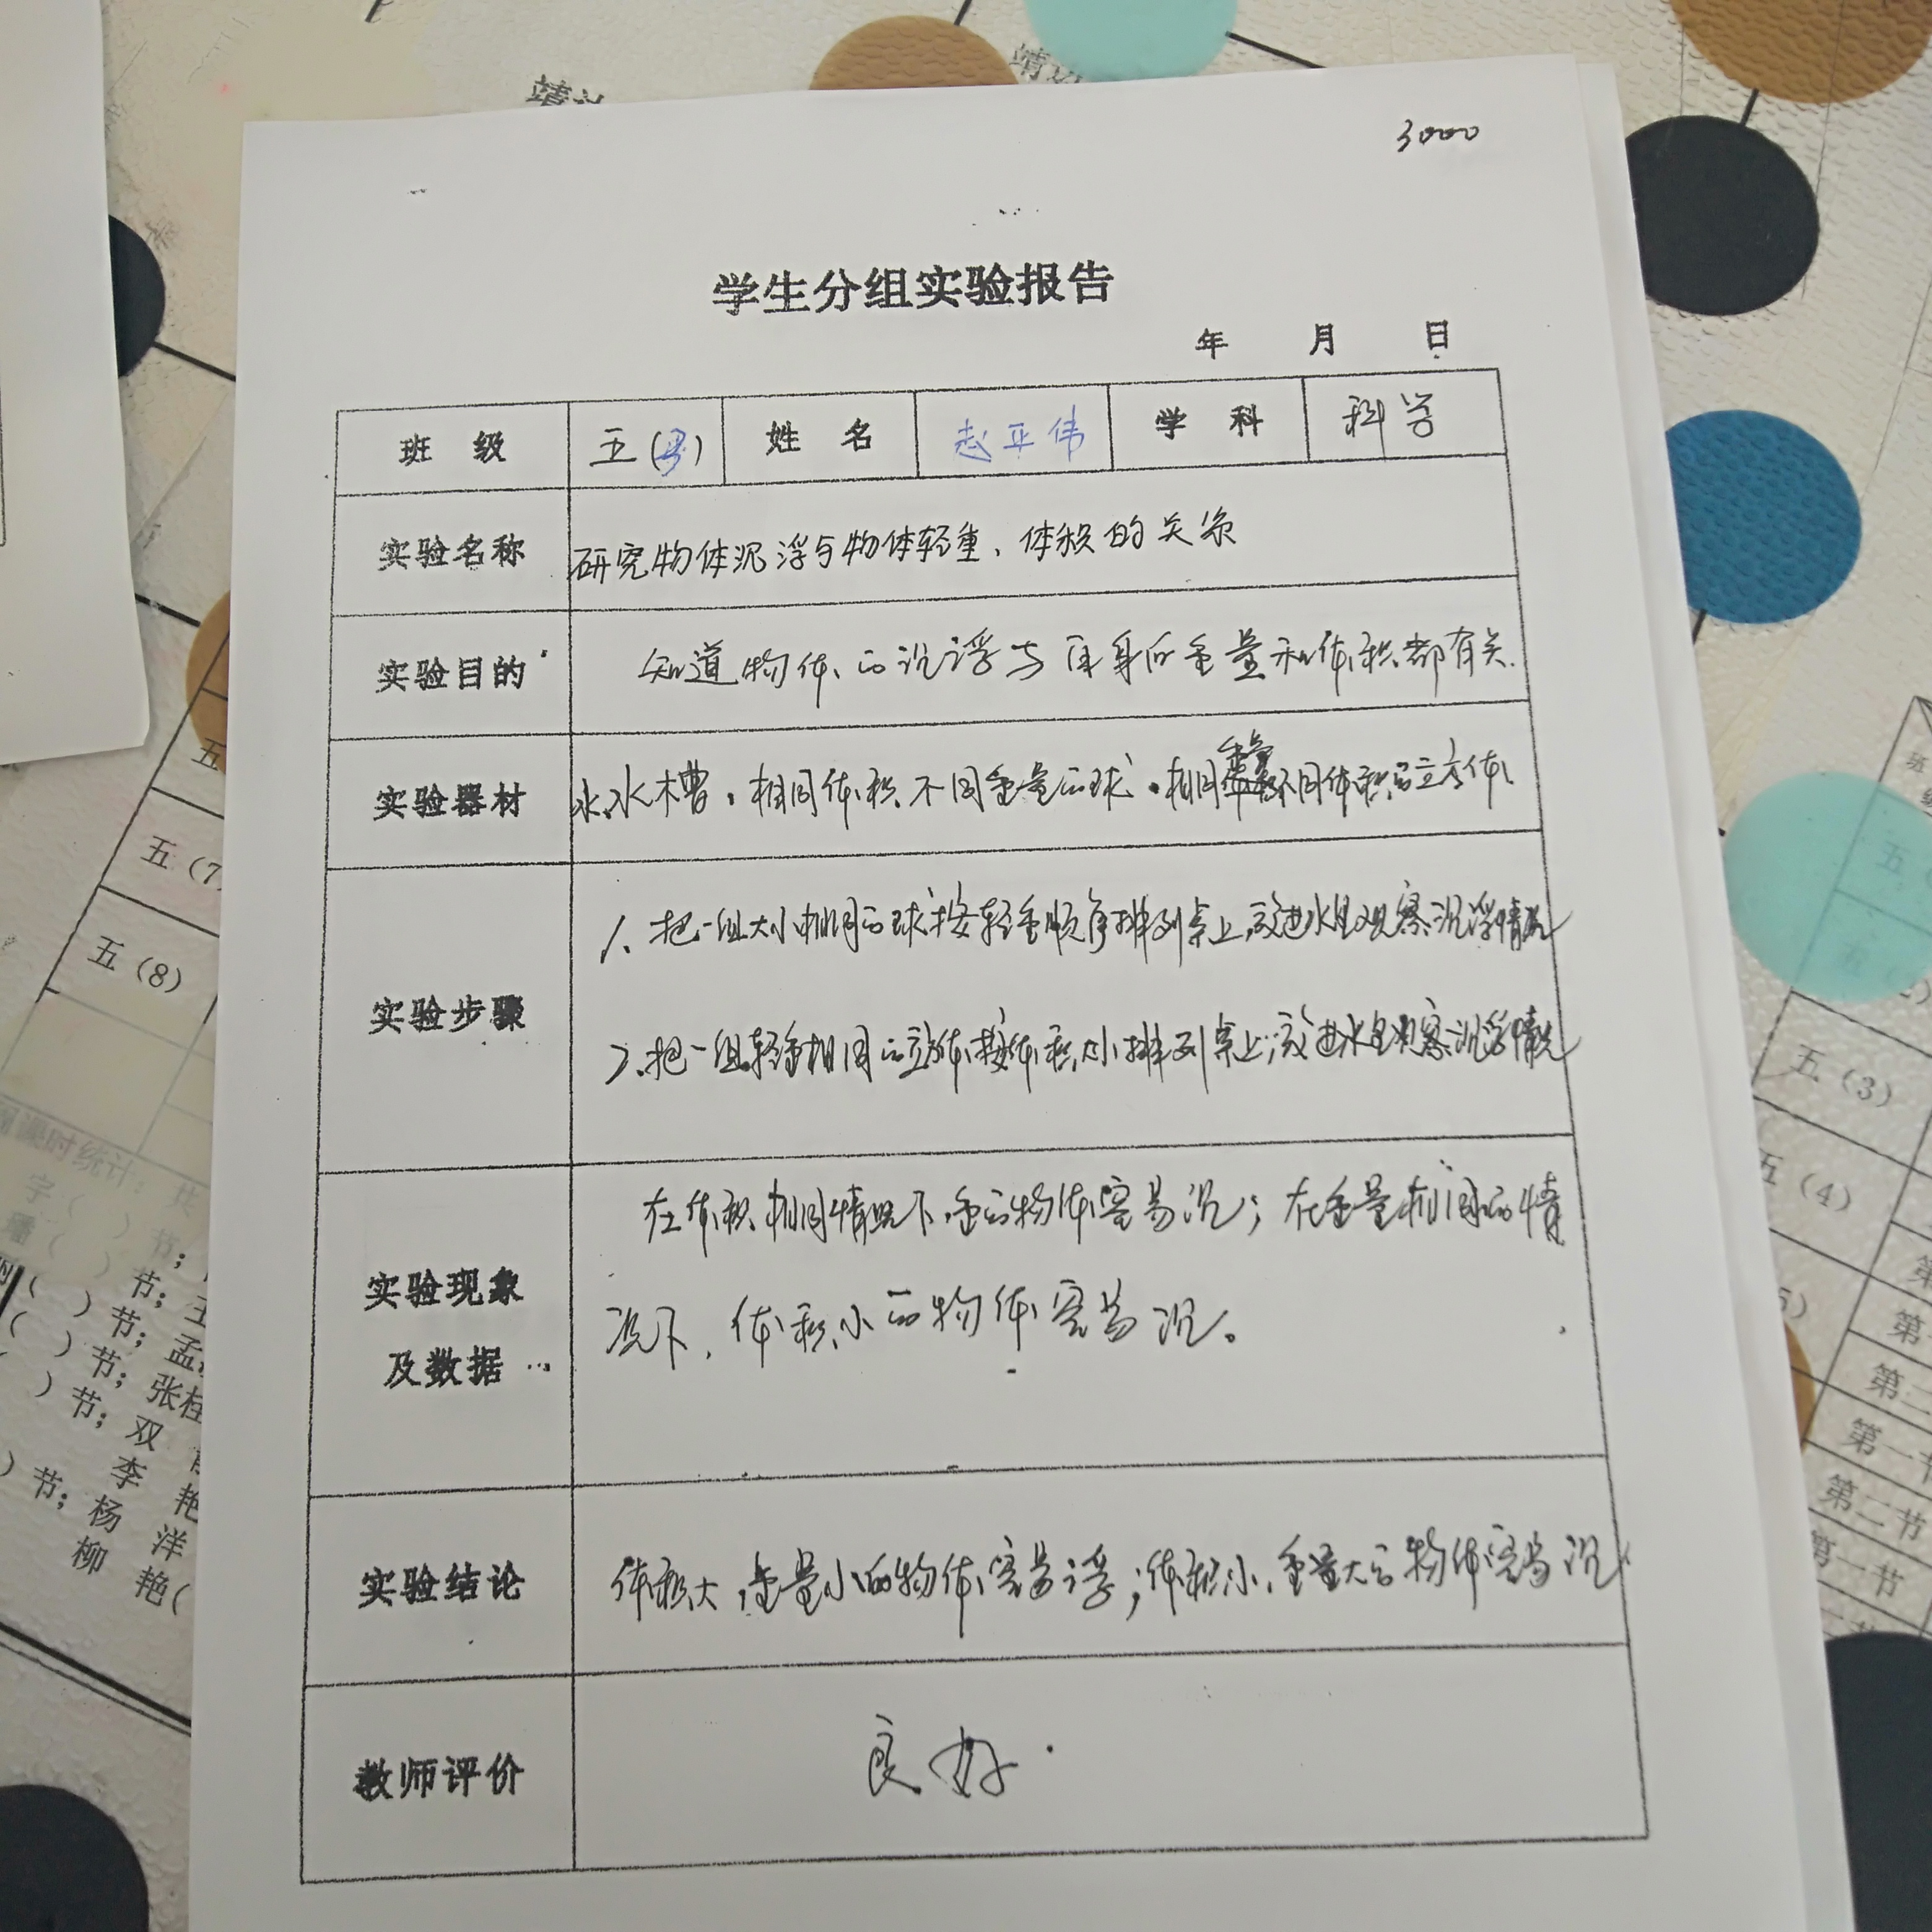 3000
学生分组实验报告
年 月 日
班 级 五( ) 姓 名 赵平伟 学 科 科学
实验名称 研究物体沉浮与物体轻重、体积的关系
实验目的 知道物体的沉浮与自身的重量和体积都有关.
实验器材 水,水槽,相同体积不同重量的球,相同重量不同体积的立方体
实验步骤
1、把一组大小相同的球按轻重顺序排列桌上,放进水里观察沉浮情况
2、把一组轻重相同的立方体按体积大小排列桌上,放进水里观察沉浮情况
实验现象
及数据
在体积相同情况下,重的物体容易沉;在重量相同的情
况下,体积小的物体容易沉。
实验结论 体积大,重量小的物体容易浮;体积小,重量大的物体容易沉
教师评价 良好.
五(7
五(8)
课时统计:
节;
节;
节; 孟
节; 张桂
节; 双
李 艳
节; 杨 洋
柳 艳(
五(3)
五(4)
第一节
第二节
第一节